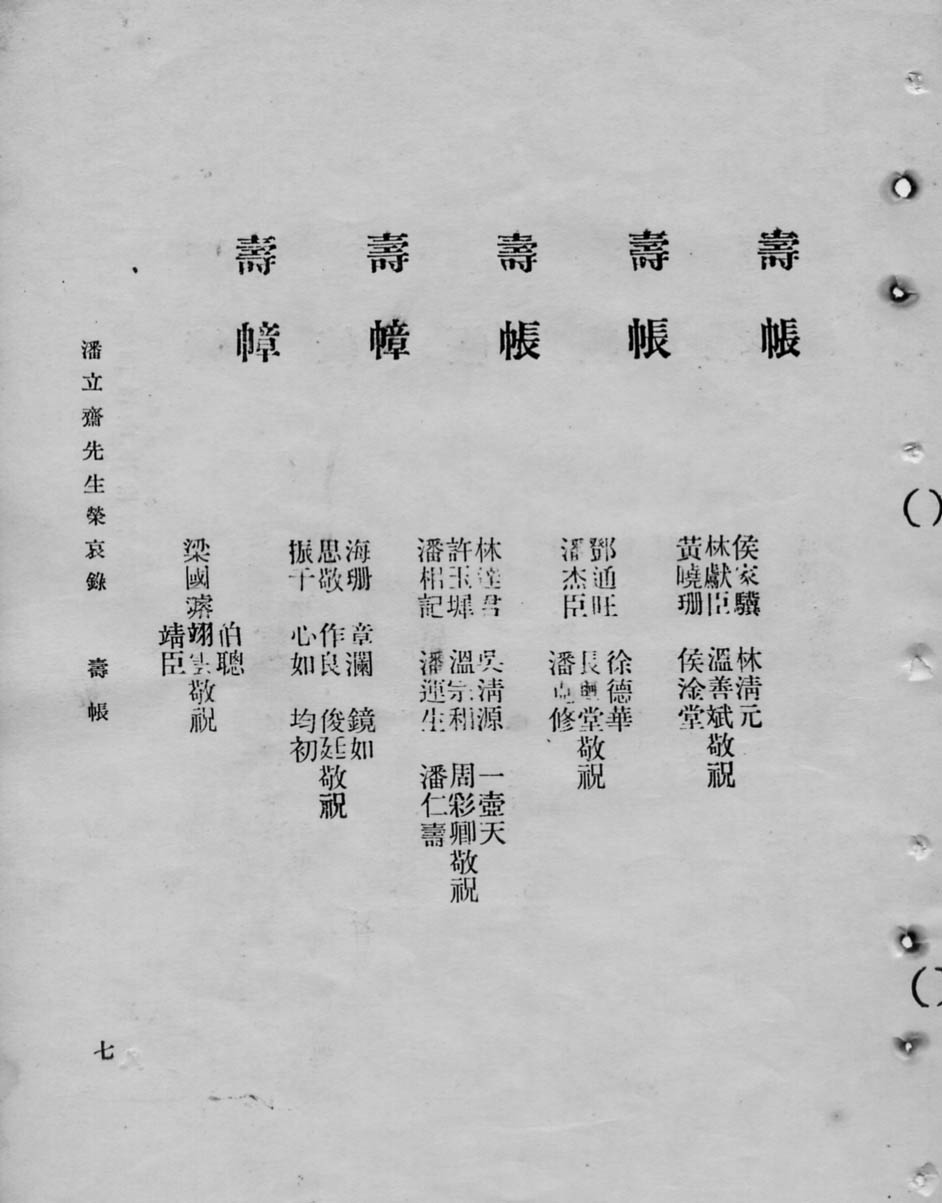 壽帳
侯家驥 林清元
林獻臣 溫善斌敬祝
黃曉珊 侯淦堂
壽帳
鄧通旺 徐德華
長興堂敬祝
潘杰臣 潘克修
壽帳
林達君 吳清源 一壺天
許玉墀 溫宗和 周彩卿敬祝
潘相記 潘運生 潘仁壽
壽幛
海珊 章瀾 鏡如
思敬 作良 俊廷敬祝
振千 心如 均初
壽幛
伯聰
梁國 翊雲敬祝
靖臣
潘立齋先生榮哀錄 壽帳
七